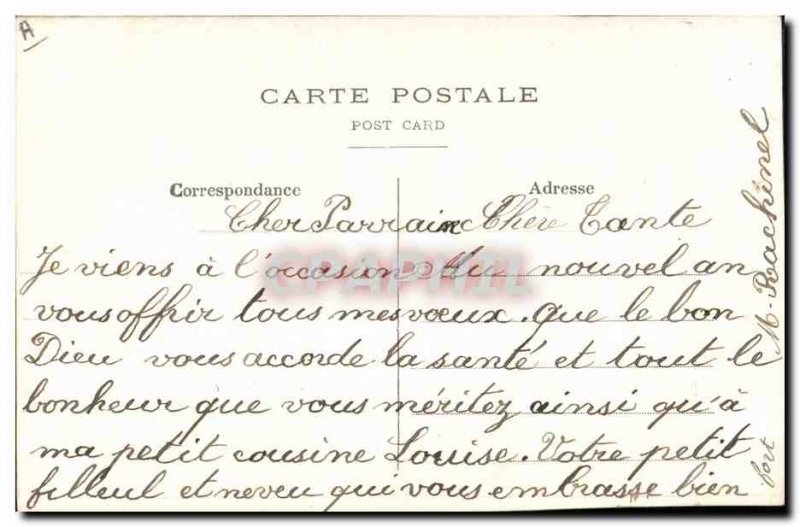 A
CARTE POSTALE
POST CARD
Correspondance
Adresse
Cher Parrain Chère Tante
Je viens à l'occasion du nouvel an
vous offrir tous mes vœux. que le bon
Dieu vous accorde la santé et tout le
bonheur que vous méritez ainsi qu'à
ma petit cousine Louise. Votre petit
filleul et neveu qui vous embrasse bien
fort M. Rachinel
CPAPHIL